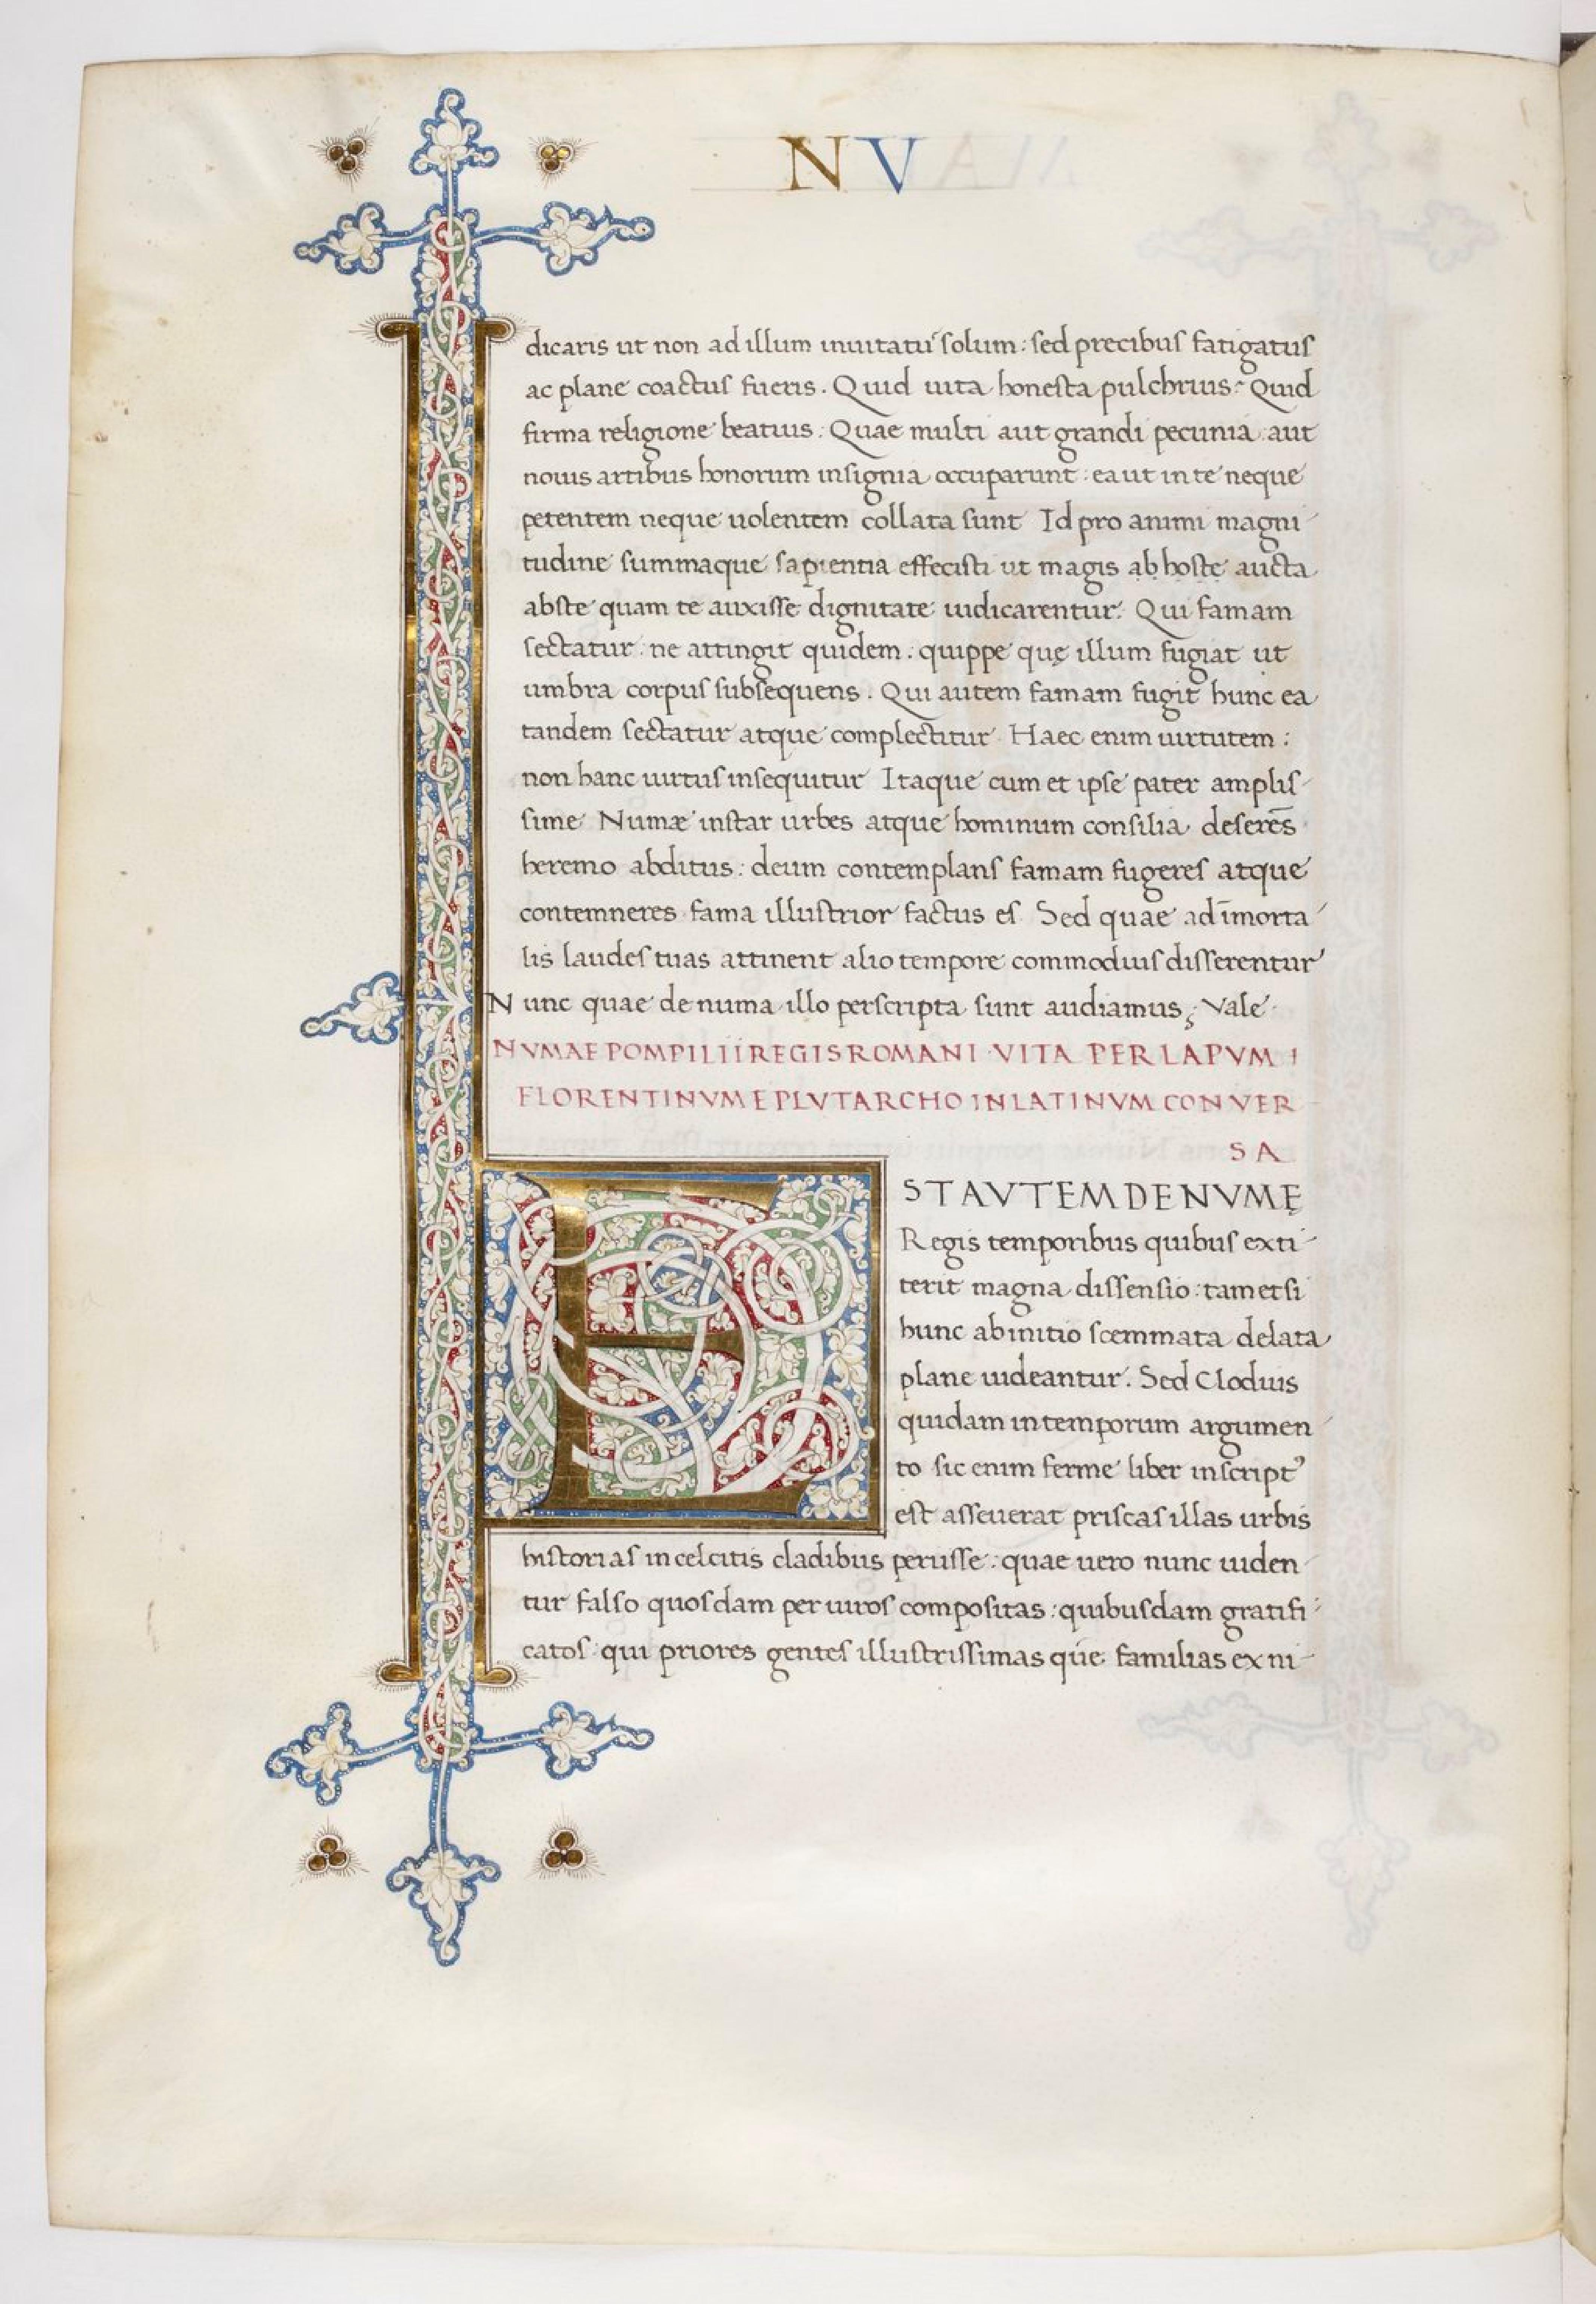 NV
dicaris ut non ad illum inuitatū solum: sed precibus fatigatus
ac plane coactus fueris. Quid uita honesta pulchrius? Quid
firma religione beatius: Quae multi aut grandi pecunia aut
nouis artibus honorum insignia occuparunt: ea ut in te neque
petentem neque uolentem collata sunt Id pro animi magni-
tudine summaque sapientia effecisti ut magis ab hoste aucta
abste quam te auxisse dignitate iudicarentur. Qui famam
sectatur: ne attingit quidem: quippe quę illum fugiat ut
umbra corpus subsequens. Qui autem famam fugit hunc ea
tandem sectatur atque complectitur. Haec enim uirtutem:
non hanc uirtus insequitur Itaque cum et ipse pater amplis-
sime Numæ instar urbes atque hominum consilia deserēs
heremo abditus: deum contemplans famam fugeres atque
contemneres fama illustrior factus es. Sed quae ad īmorta-
lis laudes tuas attinent alio tempore commodius disserentur
Nunc quae de numa illo perscripta sunt audiamus; Vale.
NVMAE POMPILII REGIS ROMANI VITA PER LAPVM
FLORENTINVM E PLVTARCHO IN LATINVM CONVER
SA
EST AVTEM DE NVMĘ
Regis temporibus quibus exti-
terit magna dissensio: tametsi
hunc ab initio scemmata delata
plane uideantur. Sed Clodius
quidam in temporum argumen-
to sic enim ferme liber inscript⁹
est asseuerat priscas illas urbis
historias in celcitis cladibus perisse: quae uero nunc uiden-
tur falso quosdam per uiros compositas: quibusdam gratifi-
catos qui priores gentes illustrissimas que familias ex ni-